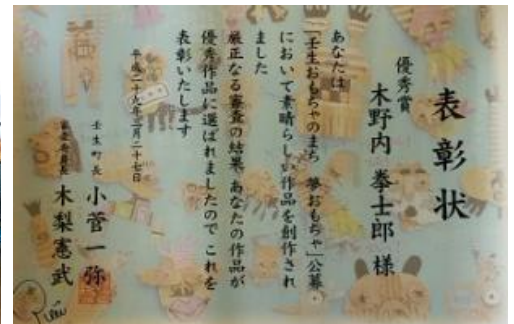 表彰状
優秀賞
木野内 拳士郎 様
あなたは
「壬生おもちゃのまち 夢おもちゃ」公募
において素晴らしい作品を創作され
ました
厳正なる審査の結果、あなたの作品が
優秀作品に選ばれましたので これを
表彰いたします
平成二十九年三月二十七日
壬生町長 小菅一弥
審査委員長 木梨憲武